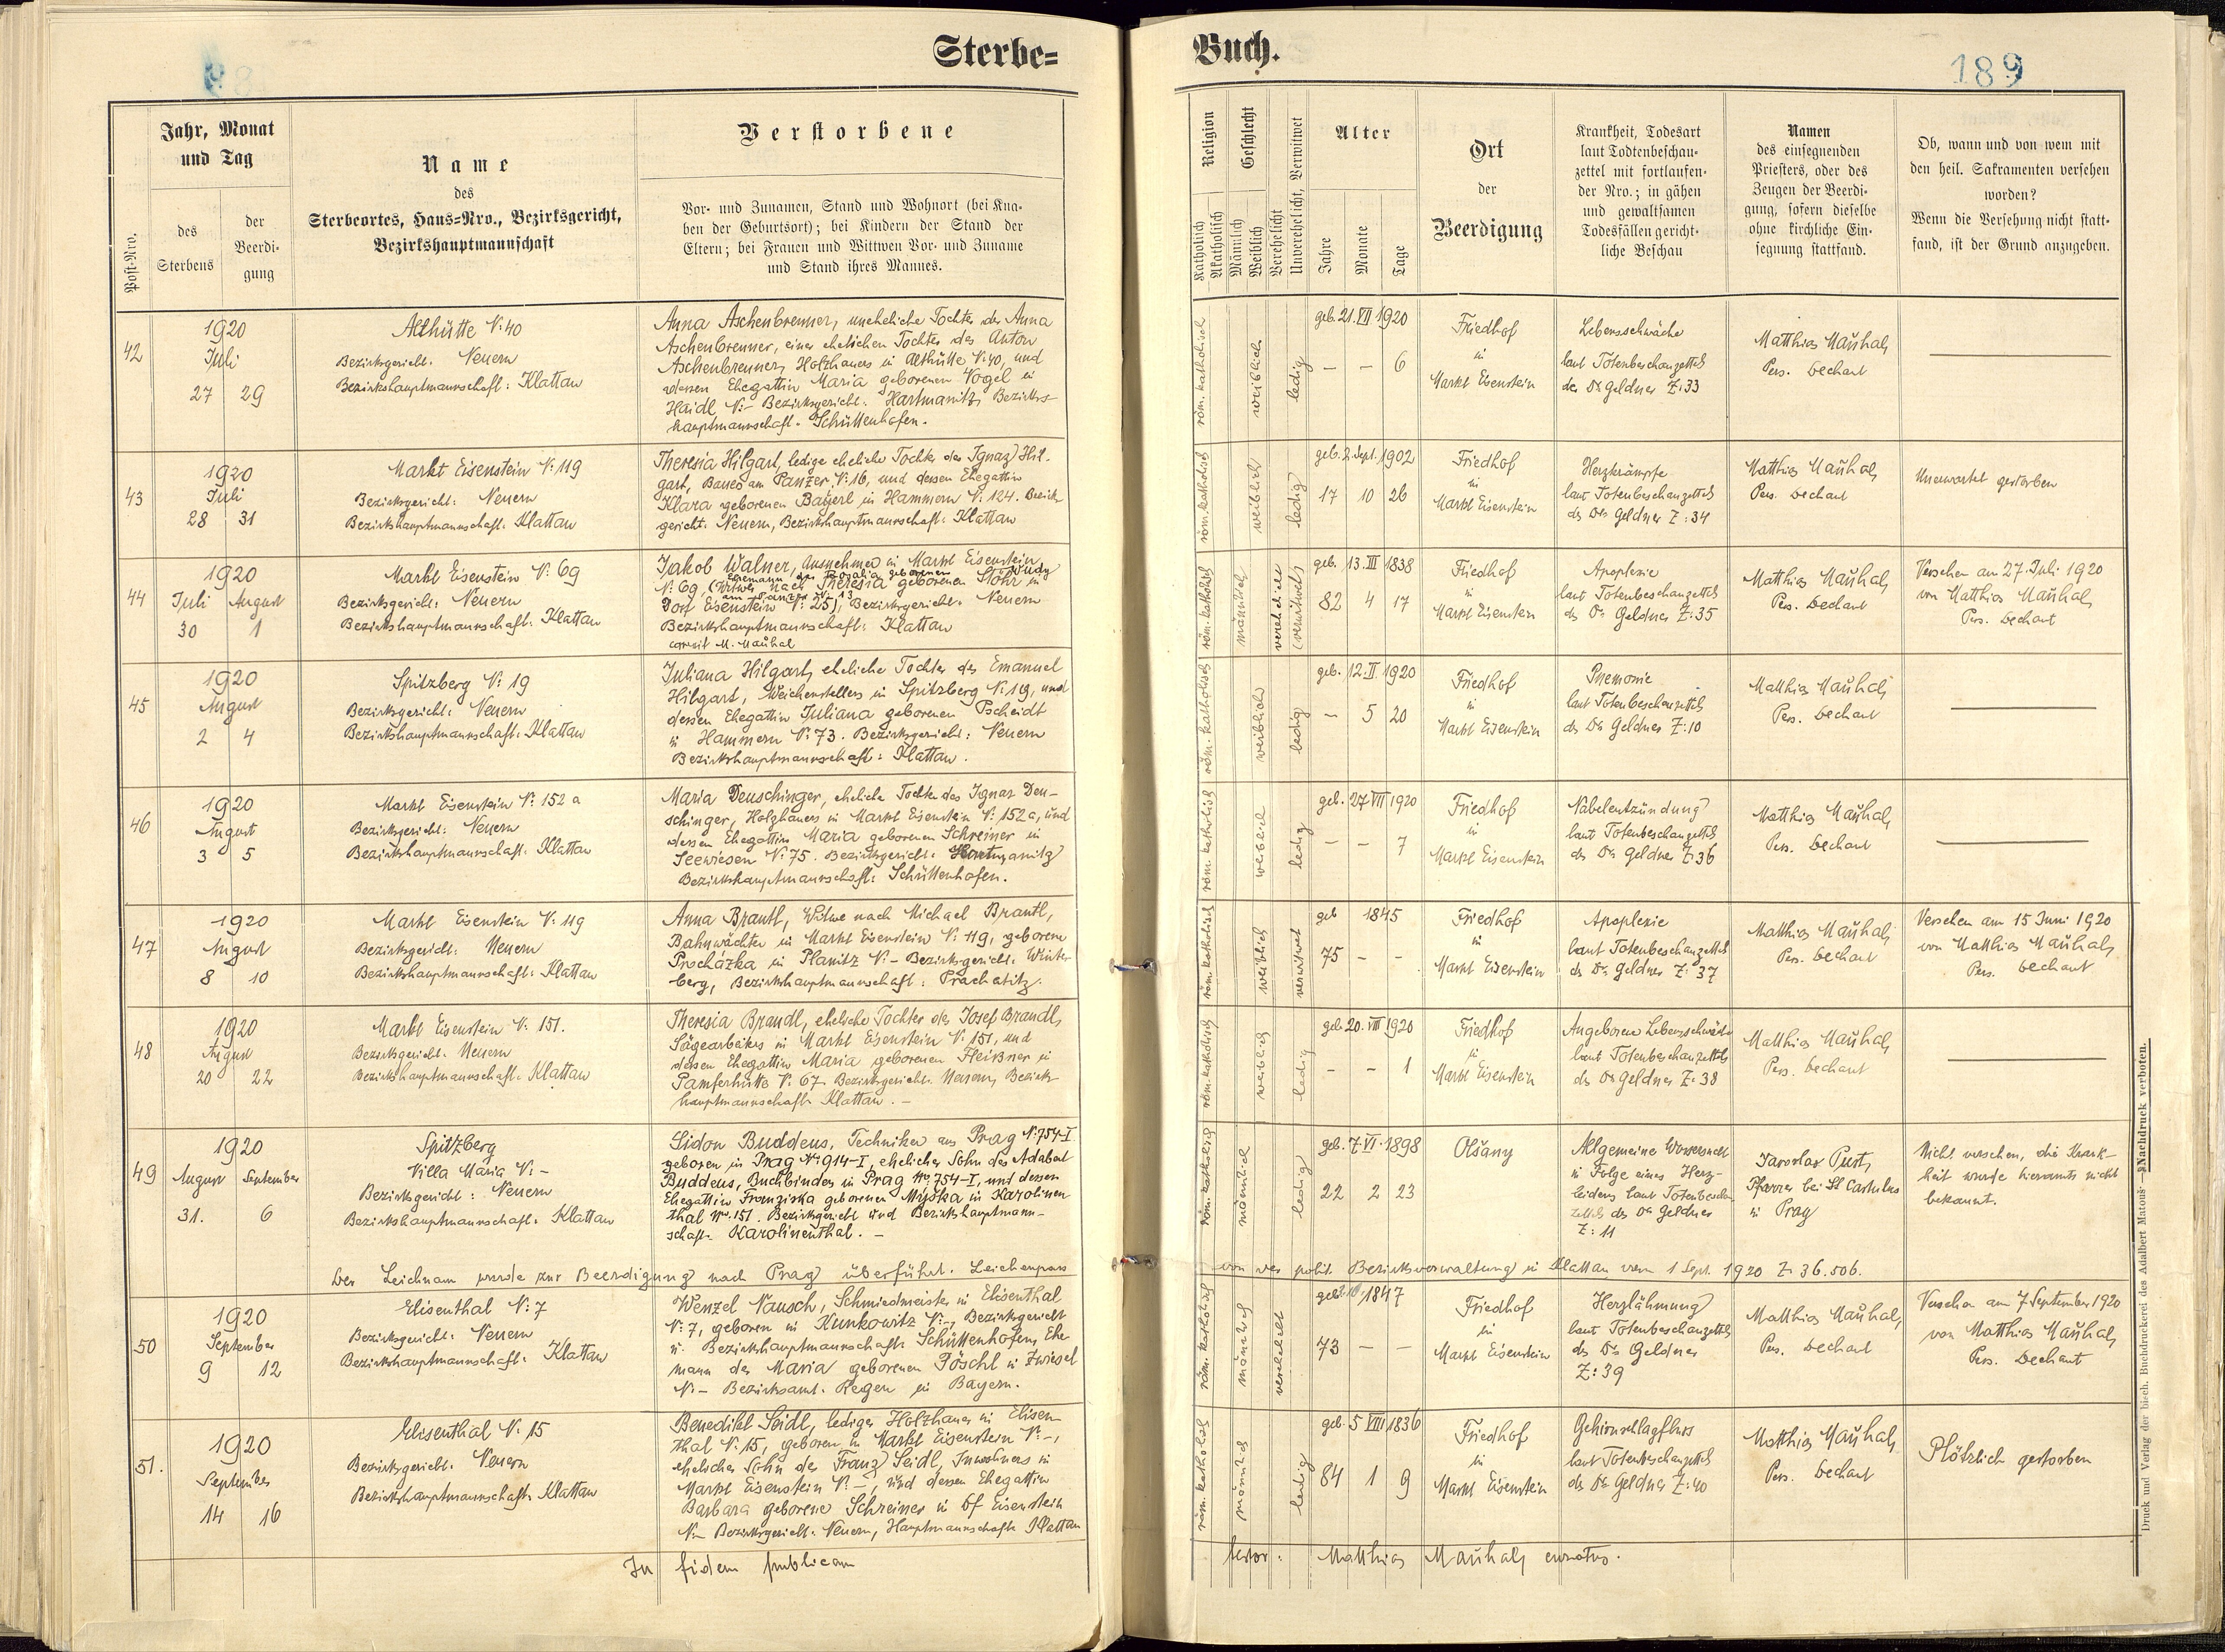 Sterbe=
Buch.
189
Post-Nro.
Jahr, Monat
und Tag
des
Sterbens
der
Beerdi-
gung
Name
des
Sterbeortes, Haus=Nro., Bezirksgericht,
Bezirkshauptmannschaft
Verstorbene
Vor- und Zunamen, Stand und Wohnort (bei Kna-
ben der Geburtsort); bei Kindern der Stand der
Eltern; bei Frauen und Wittwen Vor- und Zuname
und Stand ihres Mannes.
Religion
Katholisch
Akatholisch
Geschlecht
Männlich
Weiblich
Verehelicht
Unverehelicht, Verwitwet
Alter
Jahre
Monate
Tage
Ort
der
Beerdigung
Krankheit, Todesart
laut Todtenbeschau-
zettel mit fortlaufen-
der Nro.; in gähen
und gewaltsamen
Todesfällen gericht-
liche Beschau
Namen
des einsegnenden
Priesters, oder des
Zeugen der Beerdi-
gung, sofern dieselbe
ohne kirchliche Ein-
segnung stattfand.
Ob, wann und von wem mit
den heil. Sakramenten versehen
worden?
Wenn die Versehung nicht statt-
fand, ist der Grund anzugeben.
42
1920
Juli
27 29
Althütte N: 40
Bezirksgericht: Neuern
Bezirkshauptmannschaft: Klattau
Anna Aschenbrenner, uneheliche Tochter der Anna
Aschenbrenner, einer ehelichen Tochter des Anton
Aschenbrenner, Holzhauers in Althütte N: 40, und
dessen Ehegattin Maria geborenen Vogel in
Haidl N:- Bezirksgericht: Hartmanitz, Bezirks-
hauptmannschaft: Schüttenhofen.
röm. katholisch
weiblich
ledig
geb. 21. VII 1920
- - 6
Friedhof
in
Markt Eisenstein
Lebensschwäche
laut Totenbeschauzettels
des Dr Geldner Z: 33
Matthias Mauhal,
Pers. Dechant
43
1920
Juli
28 31
Markt Eisenstein N: 119
Bezirksgericht: Neuern
Bezirkshauptmannschaft: Klattau
Theresia Hilgart, ledige eheliche Tochter des Ignaz Hil-
gart, Bauer am Panzer N: 16, und dessen Ehegattin
Klara geborenen Bayerl in Hammern N: 124. Bezirks-
gericht: Neuern, Bezirkshauptmannschaft: Klattau
röm. katholisch
weiblich
ledig
geb. 2. Sept. 1902
17 10 26
Friedhof
in
Markt Eisenstein
Herzkrämpfe
laut Totenbeschauzettels
des Dr Geldner Z: 34
Matthias Mauhal,
Pers. Dechant
Unerwartet gestorben
44
1920
Juli August
30 1
Markt Eisenstein N: 69
Bezirksgericht: Neuern
Bezirkshauptmannschaft: Klattau
Jakob Walner, Ausnehmer in Markt Eisenstein
Ehemann der Rosalia geborenen Rudy
N: 69, (Witwer nach Theresia geborenen Stöhr in
am Panzer N: 13
Dorf Eisenstein N: 25), Bezirksgericht: Neuern
Bezirkshauptmannschaft: Klattau
correxit M. Mauhal
röm. katholisch
männlich
verehelicht
(verwitwet)
geb. 13. III 1838
82 4 17
Friedhof
in
Markt Eisenstein
Apoplexie
laut Totenbeschauzettels
des Dr Geldner Z: 35
Matthias Mauhal,
Pers. Dechant
Versehen am 27. Juli 1920
von Matthias Mauhal,
Pers. Dechant
45
1920
August
2 4
Spitzberg N: 19
Bezirksgericht: Neuern
Bezirkshauptmannschaft: Klattau
Juliana Hilgart, eheliche Tochter des Emanuel
Hilgart, Weichenstellers in Spitzberg N: 19, und
dessen Ehegattin Juliana geborenen Pscheidt
in Hammern N: 73. Bezirksgericht: Neuern
Bezirkshauptmannschaft: Klattau.
röm. katholisch
weiblich
ledig
geb. 12. II 1920
- 5 20
Friedhof
in
Markt Eisenstein
Pnemonie
laut Totenbeschauzettels
des Dr Geldner Z: 10
Matthias Mauhal,
Pers. Dechant
46
1920
August
3 5
Markt Eisenstein N: 152 a
Bezirksgericht: Neuern
Bezirkshauptmannschaft: Klattau
Maria Deuschinger, eheliche Tochter des Ignaz Deu-
schinger, Holzhauers in Markt Eisenstein N: 152 a, und
dessen Ehegattin Maria geborenen Schreiner in
Seewiesen N: 75. Bezirksgericht: Hartmanitz
Bezirkshauptmannschaft: Schüttenhofen.
röm. katholisch
weiblich
ledig
geb. 27 VII 1920
- - 7
Friedhof
in
Markt Eisenstein
Nabelentzündung
laut Totenbeschauzettels
des Dr Geldner Z: 36
Matthias Mauhal,
Pers. Dechant
47
1920
August
8 10
Markt Eisenstein N: 119
Bezirksgericht: Neuern
Bezirkshauptmannschaft: Klattau
Anna Brantl, Witwe nach Michael Brantl,
Bahnwächter in Markt Eisenstein N: 119, geborene
Procházka in Planitz N:- Bezirksgericht: Winter-
berg, Bezirkshauptmannschaft: Prachatitz.
röm. katholisch
weiblich
verwitwet
geb 1845
75 - -
Friedhof
in
Markt Eisenstein
Apoplexie
laut Totenbeschauzettels
des Dr Geldner Z: 37
Matthias Mauhal,
Pers. Dechant
Versehen am 15 Juni 1920
von Matthias Mauhal,
Pers. Dechant
48
1920
August
20 22
Markt Eisenstein N: 151.
Bezirksgericht: Neuern
Bezirkshauptmannschaft: Klattau
Theresia Brandl, eheliche Tochter des Josef Brandl,
Sägearbeiters in Markt Eisenstein N: 151, und
dessen Ehegattin Maria geborenen Fleißner in
Pamferhütte N: 67. Bezirksgericht: Neuern, Bezirks-
hauptmannschaft: Klattau. -
röm. katholisch
weiblich
ledig
geb. 20. VIII 1920
- - 1
Friedhof
in
Markt Eisenstein
Angeborene Lebensschwäche
laut Totenbeschauzettels
des Dr Geldner Z: 38
Matthias Mauhal,
Pers. Dechant
49
1920
August September
31. 6
Spitzberg
Villa Maria N:-
Bezirksgericht: Neuern
Bezirkshauptmannschaft: Klattau
Sidon Buddeus, Techniker aus Prag N: 754-I
geboren in Prag No 914-I, ehelicher Sohn des Adabat
Buddeus, Buchbinders in Prag No 754-I, und dessen
Ehegattin Franziska geborenen Myška in Karolinen
thal No. 151. Bezirksgericht und Bezirkshauptmann-
schaft: Karolinenthal. -
röm. katholisch
männlich
ledig
geb. 7. VI. 1898
22 2 23
Olšany
Allgemeine Wassersucht
in Folge eines Herz-
leidens laut Totenbeschau
zettels des Dr Geldner
Z: 11
Jaroslav Pust,
Pfarrer bei St Castulus
in Prag
Nicht versehen, die Krank-
heit wurde hieramts nicht
bekannt.
Der Leichnam wurde zur Beerdigung nach Prag überführt. Leichenpass
von der polit. Bezirksverwaltung in Klattau vom 1 Sept. 1920 Z: 36.506.
50
1920
September
9 12
Elisenthal N: 7
Bezirksgericht: Neuern
Bezirkshauptmannschaft: Klattau
Wenzel Nausch, Schmiedmeister in Elisenthal
N: 7, geboren in Kunkowitz N:-, Bezirksgericht
u. Bezirkshauptmannschaft: Schüttenhofen, Ehe
mann der Maria geborenen Pöschl in Zwiesel
N:- Bezirksamt: Regen in Bayern.
röm. katholisch
männlich
verehelicht
1847
73 - -
Friedhof
in
Markt Eisenstein
Herzlähmung
laut Totenbeschauzettels
des Dr Geldner
Z: 39
Matthias Mauhal,
Pers. Dechant
Versehen am 7 September 1920
von Matthias Mauhal,
Pers. Dechant
51.
1920
September
14 16
Elisenthal N: 15
Bezirksgericht: Neuern
Bezirkshauptmannschaft: Klattau
Benedikt Seidl, lediger Holzhauer in Elisen-
thal N: 15, geboren in Markt Eisenstein N:-,
ehelicher Sohn des Franz Seidl, Inwohners in
Markt Eisenstein N:-, und dessen Ehegattin
Barbara geborene Schreiner in Df Eisenstein
N:- Bezirksgericht: Neuern, Hauptmannschaft: Klattau
röm. katholisch
männlich
ledig
geb. 5 VIII 1836
84 1 9
Friedhof
in
Markt Eisenstein
Gehirnschlagfluss
laut Totenbeschauzettels
des Dr Geldner Z: 40
Matthias Mauhal,
Pers. Dechant
Plötzlich gestorben
In fidem publicam
testor: Matthias Mauhal, curatus.
Druck und Verlag der bisch. Buchdruckerei des Adalbert Matouš. — Nachdruck verboten.